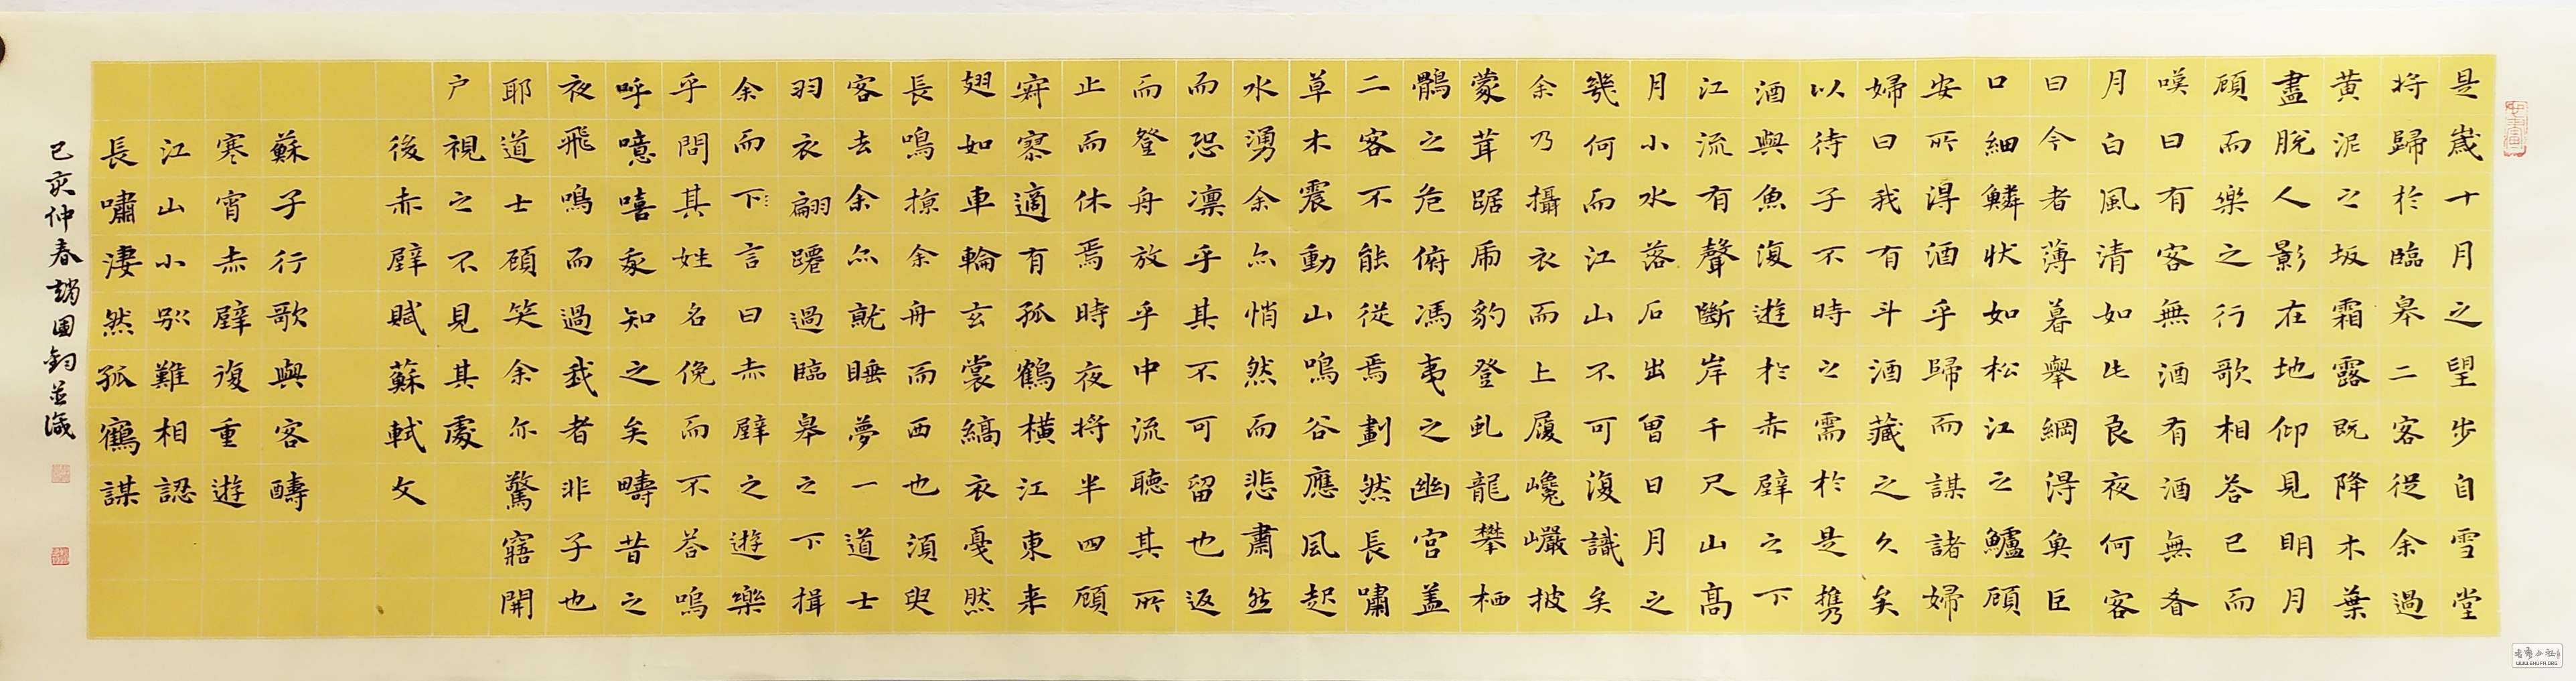 是歲十月之望步自雪堂
將歸於臨皋二客從余過
黃泥之坂霜露既降木葉
盡脫人影在地仰見明月
顧而樂之行歌相答已而
嘆曰有客無酒有酒無肴
月白風清如此良夜何客
曰今者薄暮舉網得魚巨
口細鱗狀如松江之鱸顧
安所得酒乎歸而謀諸婦
婦曰我有斗酒藏之久矣
以待子不時之需於是携
酒與魚復遊於赤壁之下
江流有聲斷岸千尺山高
月小水落石出曾日月之
幾何而江山不可復識矣
余乃攝衣而上履巉巖披
蒙茸踞虎豹登虬龍攀栖
鶻之危俯馮夷之幽宮盖
二客不能從焉劃然長嘯
草木震動山鳴谷應風起
水湧余亦悄然而悲肅然
而恐凜乎其不可留也返
而登舟放乎中流聽其所
止而休焉時夜將半四顧
寂寥適有孤鶴橫江東来
翅如車輪玄裳縞衣戛然
長鳴掠余舟而西也須臾
客去余亦就睡夢一道士
羽衣翩躚過臨皋之下揖
余而下言曰赤壁之遊樂
乎問其姓名俛而不答嗚
呼噫嘻我知之矣疇昔之
夜飛鳴而過我者非子也
耶道士顧笑余尔驚寤開
户視之不見其處
後赤壁賦蘇軾文
蘇子行歌與客醻
寒宵赤壁復重遊
江山小別難相認
長嘯淒然孤鶴謀
己亥仲春趙國鈞並識
WWW.SHUFA.ORG